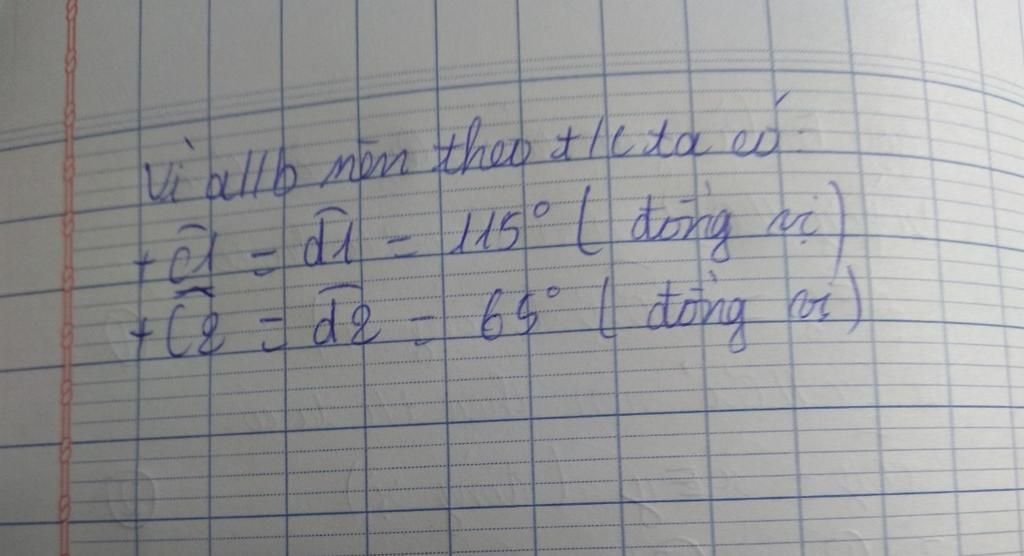 Vì a//b nên theo t/c ta có:
+ ĉ1 = d̂1 = 115° ( đồng vị )
+ Ĉ2 = d̂2 = 65° ( đồng vị )